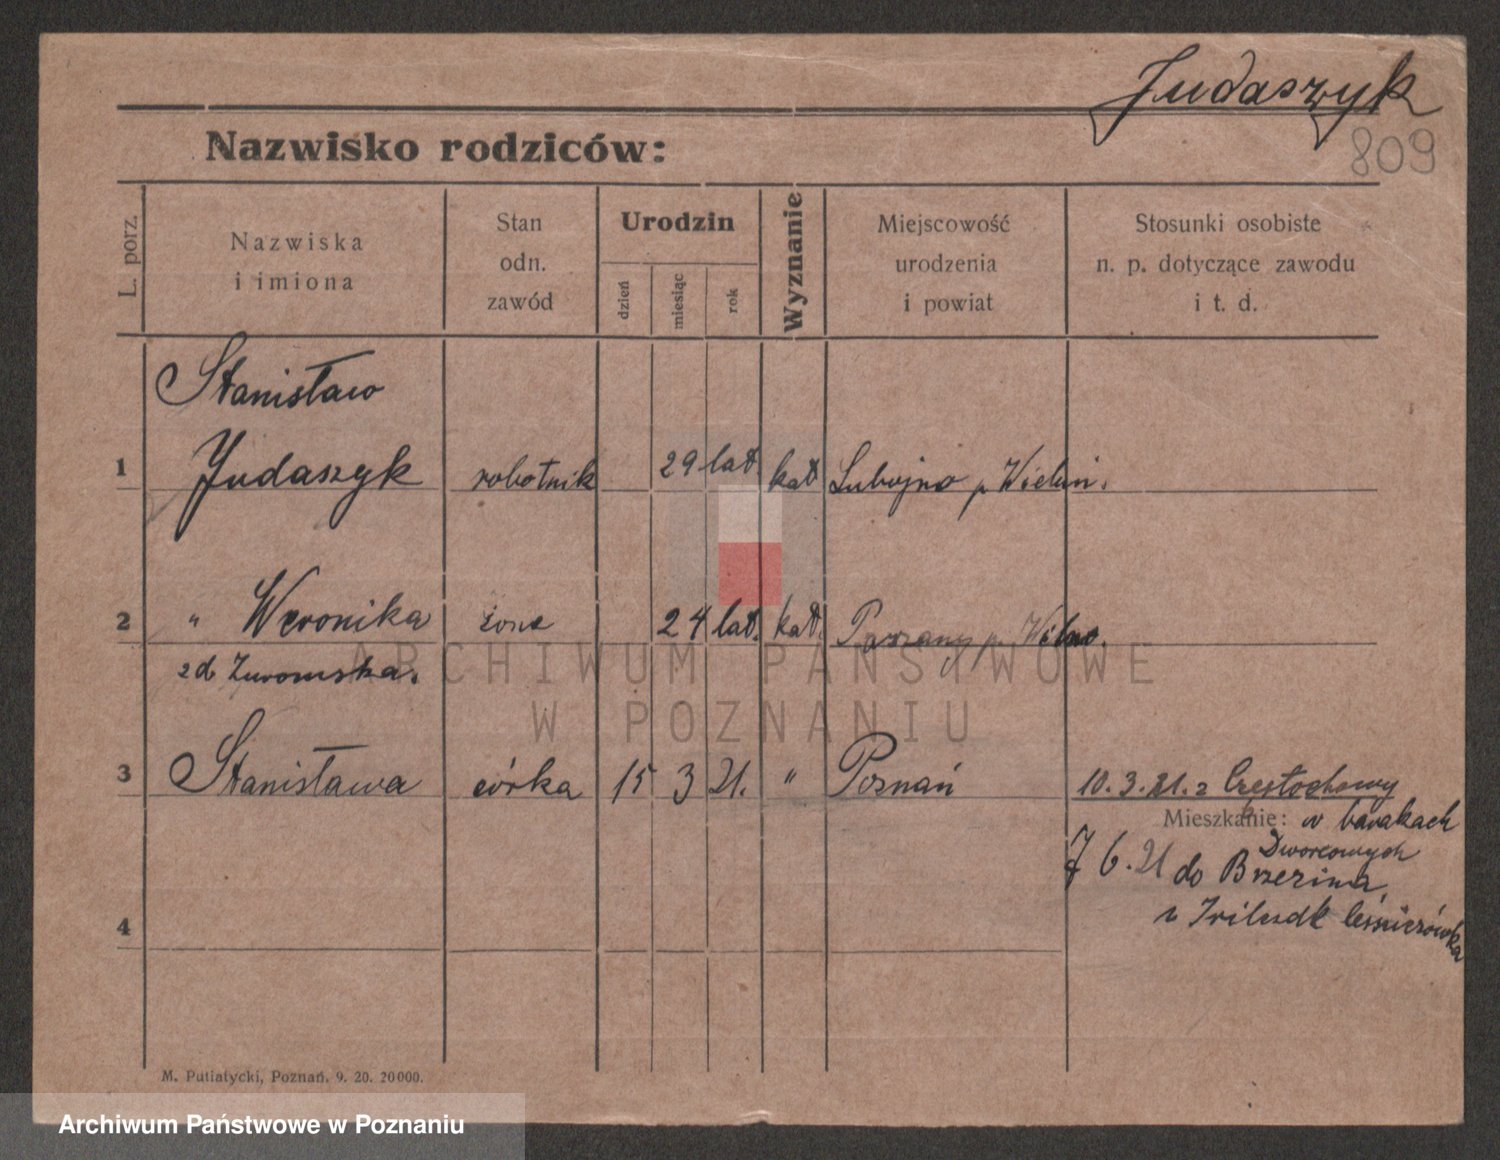 Judaszyk
809
Nazwisko rodziców:
L. porz.
Nazwiska
i imiona
Stan
odn.
zawód
Urodzin
dzień
miesiąc
rok
Wyznanie
Miejscowość
urodzenia
i powiat
Stosunki osobiste
n. p. dotyczące zawodu
i t. d.
Stanisław
1 Judaszyk robotnik 29 lat. kat Lubojno p Wieluń.
2 " Weronika żona 24 lat. kat. p. Wilno.
zd
3 Stanisława córka 15 3 21. " Poznań 10.3.21. z Częstochowy
Mieszkanie: w barakach
Dworcowych
7 6. 21 do
leśniczówka
4
M. Putiatycki, Poznań. 9. 20. 20000.
ARCHIWUM PAŃSTWOWE
W POZNANIU
Archiwum Państwowe w Poznaniu